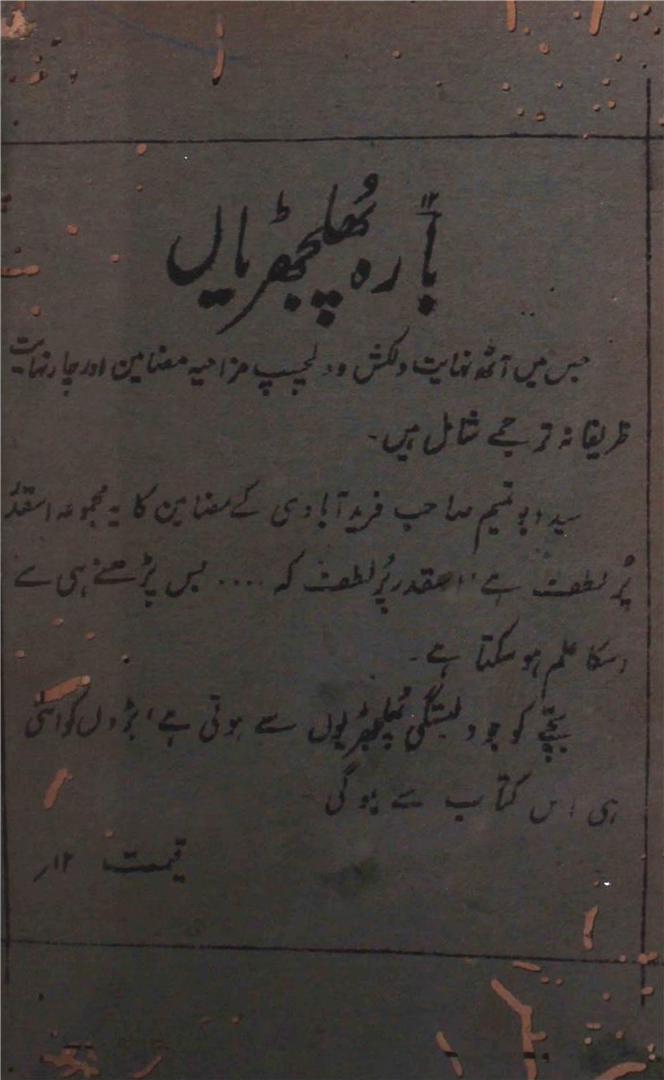 ۱۲
بارہ پُھلجھڑیاں
جس میں آٹھ نہایت دلکش و دلچسپ مزاحیہ مضامین اور چار نہایت
ظریفانہ ترجمے شامل ہیں۔
سید ابو تمیم صاحب فریدآبادی کے مضامین کا یہ مجموعہ اسقدر
پُر لطف ہے، اسقدر پُر لطف کہ .... بس پڑھنے ہی سے
اسکا علم ہو سکتا ہے۔
بچّے کو جو دلبستگی پُھلجھڑیوں سے ہوتی ہے، بڑوں کو اتنی
ہی اس کتاب سے ہو گی
قیمت ۱۲؍